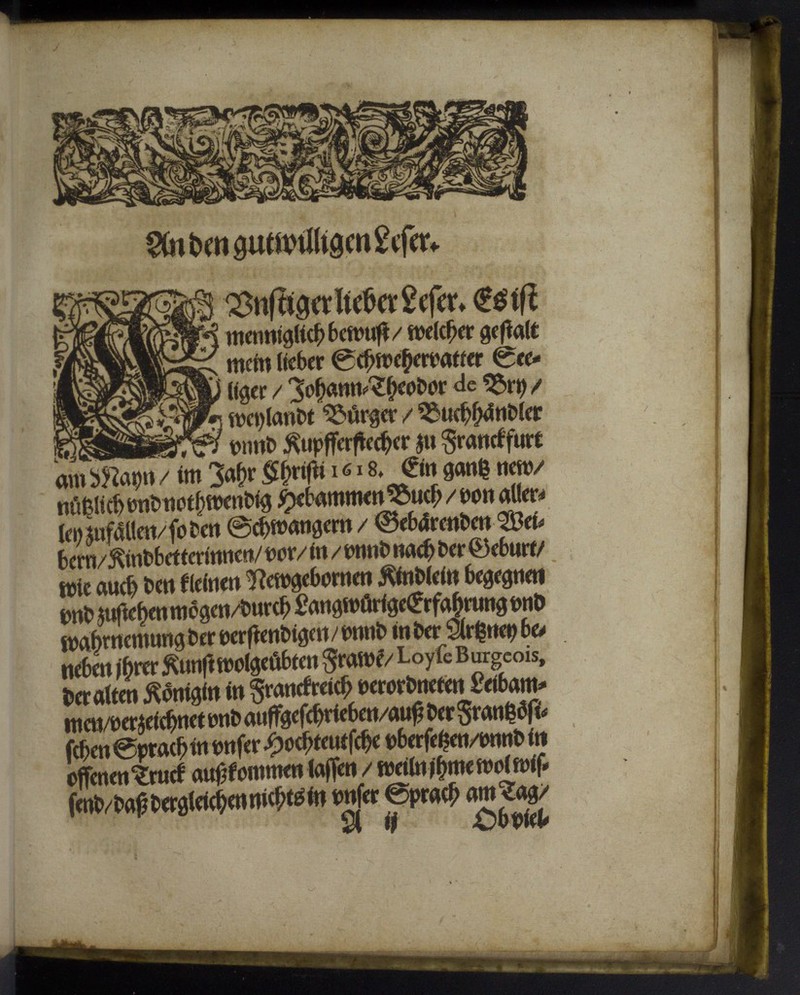 An den gutwilligen Leser.
GVnstiger lieber Leser. Es ist
menniglich bewust / welcher gestalt
mein lieber Schwehervatter See-
liger / Johann-Theodor de Bry /
weylandt Bürger / Buchhändler
vnnd Kupfferstecher zu Franckfurt
am Mayn / im Jahr Christi 1618. Ein gantz new /
nützlich vnd nothwendig Hebammen Buch / von aller-
ley zufällen / so den Schwangern / Gebärenden Wei-
bern / Kindbetterinnen / vor / in / vnnd nach der Geburt /
wie auch den kleinen Newgebornen Kindlein begegnen
vnd zustehen mögen / durch Langwürige Erfahrung vnd
wahrnemung der verstendigen / vnnd in der Artzney be-
neben jhrer Kunst wolgeübten Frawē / Loyse Burgeois,
der alten Königin in Franckreich verordneten Leibam-
men / verzeichnet vnd auffgeschrieben / auß der Frantzösi-
schen Sprach in vnser Hochteutsche vbersetzen / vnnd in
offenen Truck außkommen lassen / weiln jhme wol wis-
send / daß dergleichen nichts in vnser Sprach am Tag /
A ij Ob viel-